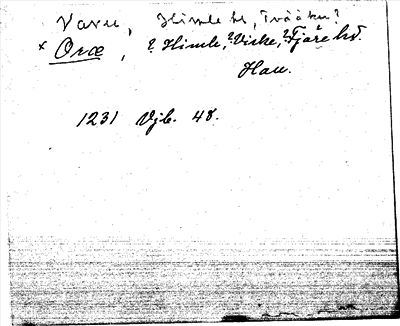 Varu, Himle hd, Tvååker?
× Oræ, ? Himle, ? Viske, ? Fjäre hd.
Hall.
1231 Vjb. 48.